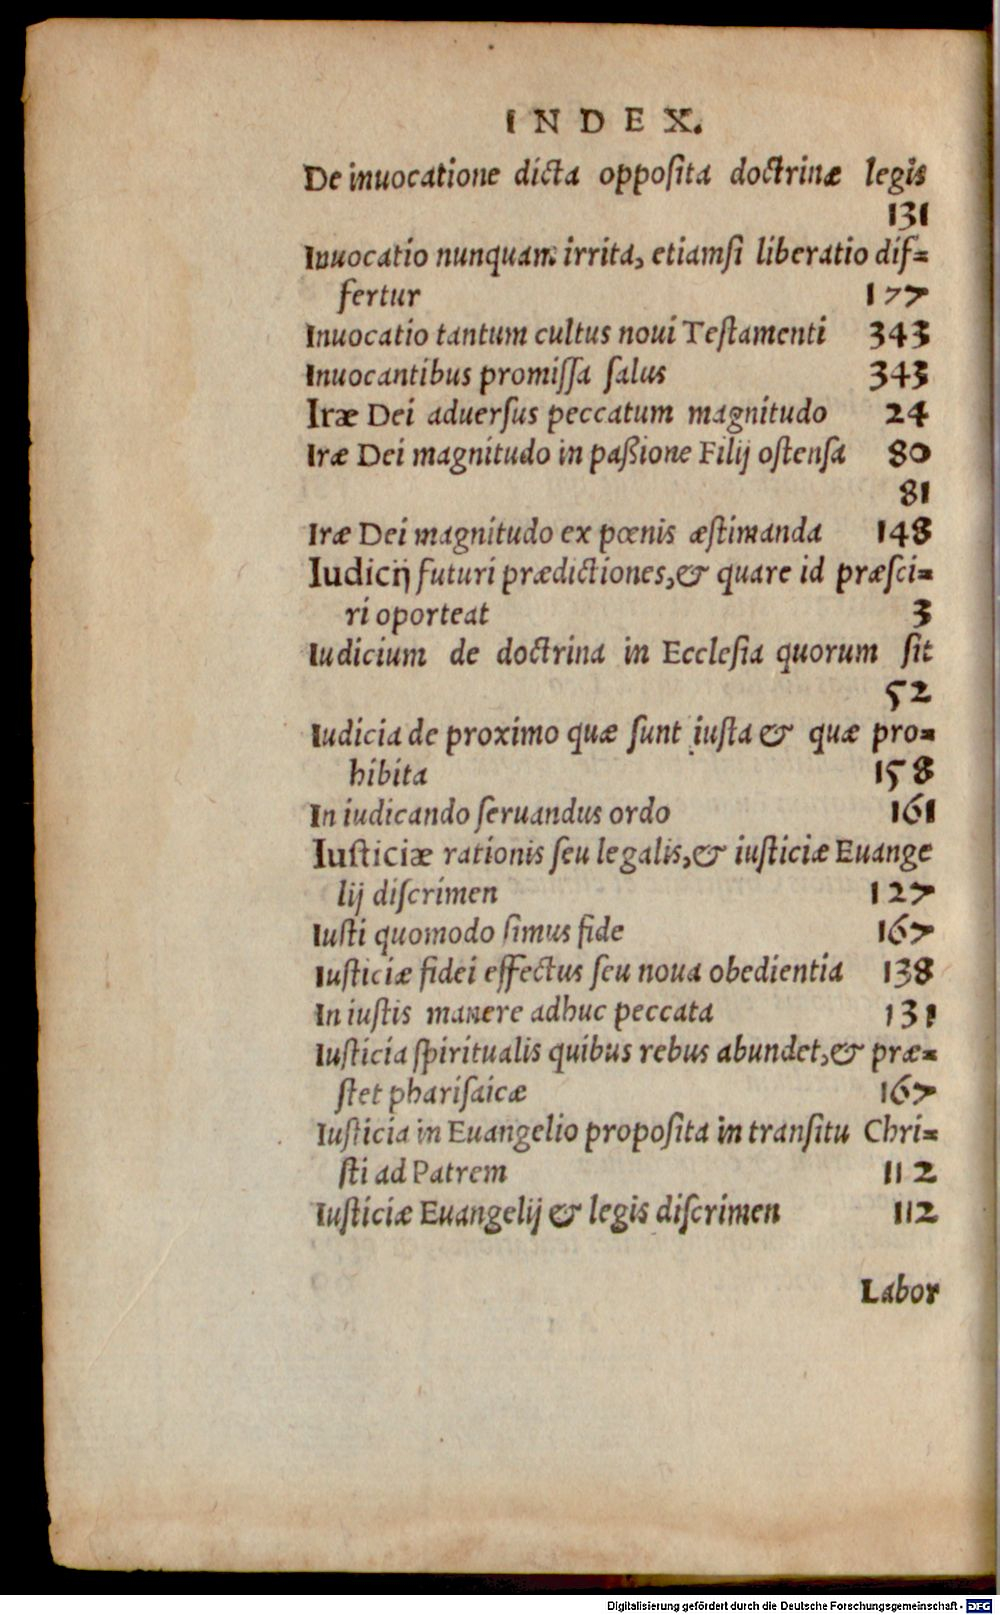 INDEX.
De inuocatione dicta opposita doctrinæ legis
131
Inuocatio nunquam irrita, etiamsi liberatio dif=
fertur 177
Inuocatio tantum cultus noui Testamenti 343
Inuocantibus promissa salus 343
Iræ Dei aduersus peccatum magnitudo 24
Iræ Dei magnitudo in paßione Filij ostensa 80
81
Iræ Dei magnitudo ex pœnis æstimanda 148
Iudicij futuri prædictiones, & quare id præsci=
ri oporteat 3
Iudicium de doctrina in Ecclesia quorum sit
52
Iudicia de proximo quæ sunt iusta & quæ pro=
hibita 158
In iudicando seruandus ordo 161
Iusticiæ rationis seu legalis, & iusticiæ Euange
lij discrimen 127
Iusti quomodo simus fide 167
Iusticiæ fidei effectus seu noua obedientia 138
In iustis manere adhuc peccata 131
Iusticia spiritualis quibus rebus abundet, & præ=
stet pharisaicæ 167
Iusticia in Euangelio proposita in transitu Chri=
sti ad Patrem 112
Iusticiæ Euangelij & legis discrimen 112
Labor
Digitalisierung gefördert durch die Deutsche Forschungsgemeinschaft - DFG